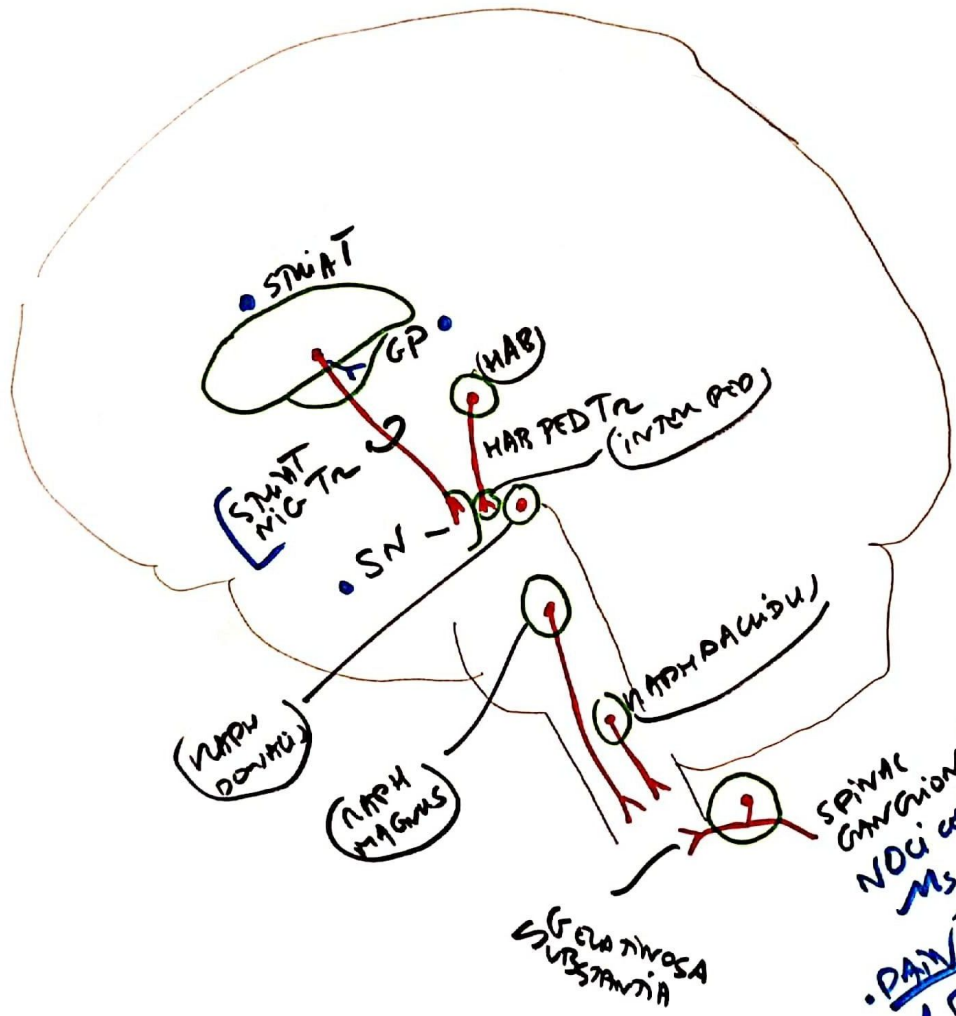 STRIAT
GP
(HAB)
HAB PED Tr
(INTER PED)
STRIAT
NIG Tr
SN
(RAPH
DORALIS)
(RAPH
MAGNUS)
RAPH PALLIDUS)
SPINAL
GANGLION
NOCI
GELATINOSA
SUBSTANTIA
PAIN